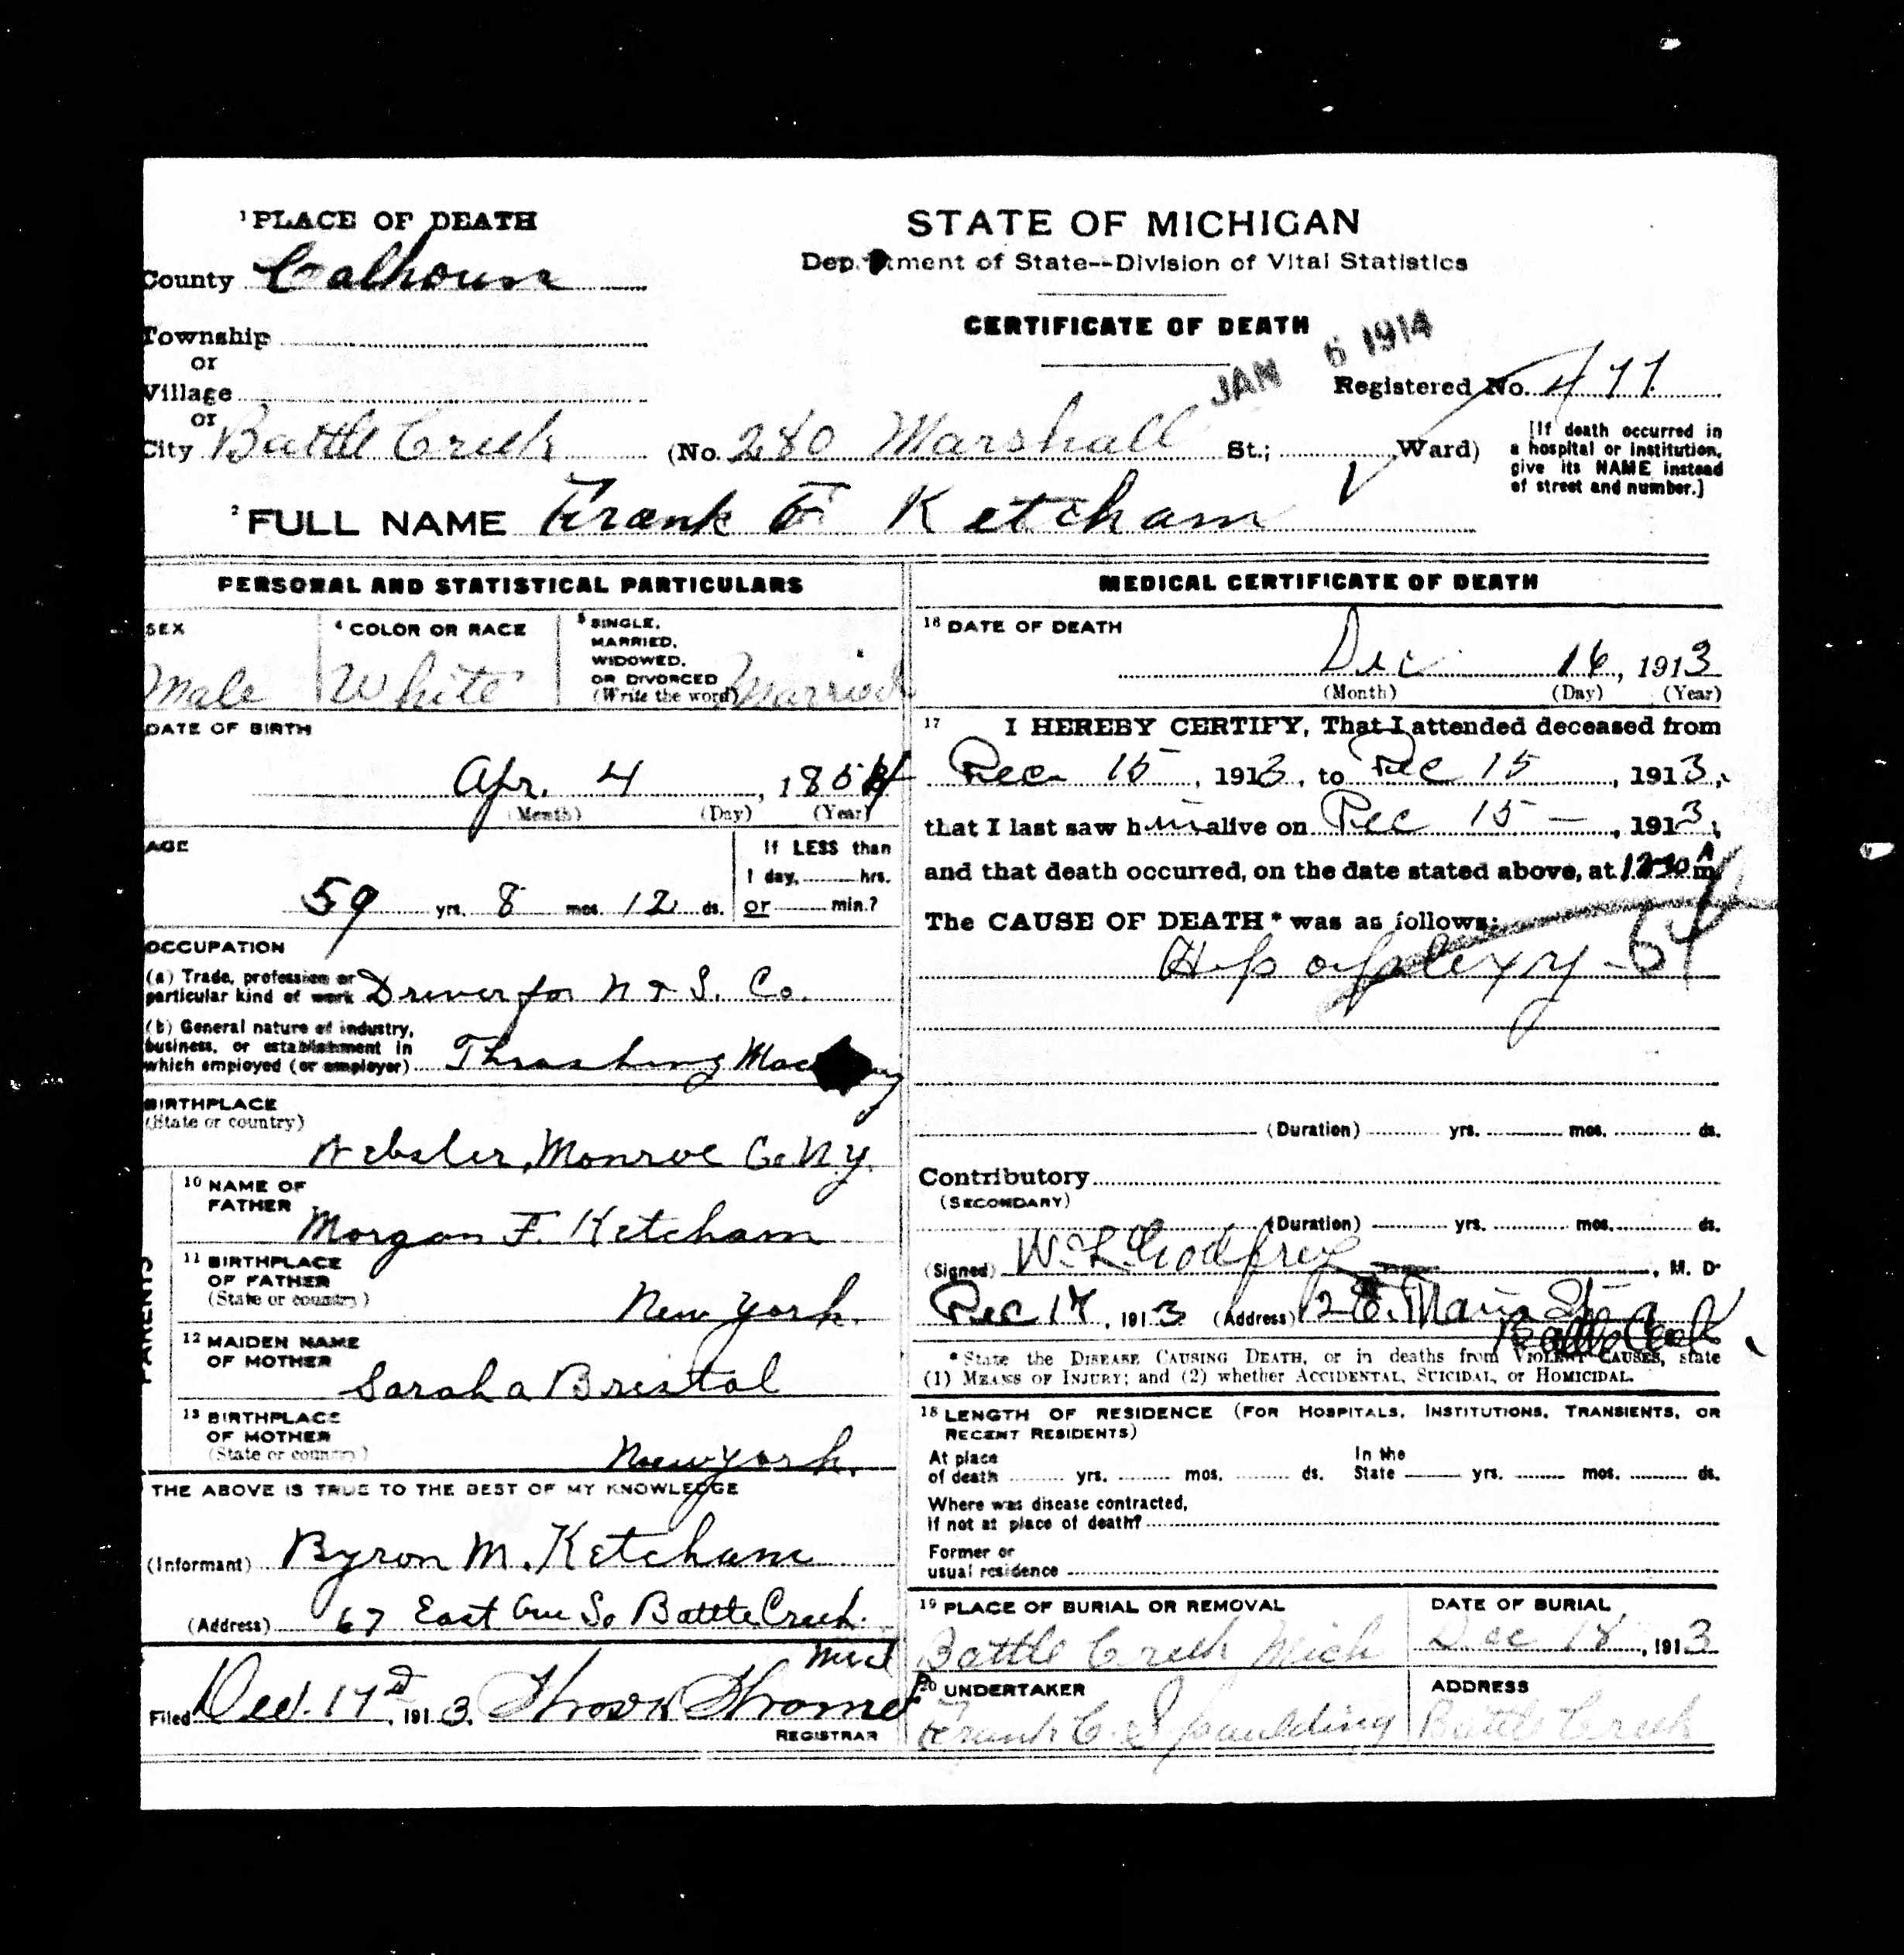 1 PLACE OF DEATH
County Calhoun
Township
or
Village
or
City Battle Creek (No. 280 Marshall St.; Ward)
STATE OF MICHIGAN
Department of State--Division of Vital Statistics
CERTIFICATE OF DEATH
JAN 6 1914
Registered No. 477
[If death occurred in
a hospital or institution,
give its NAME instead
of street and number.]
2 FULL NAME Frank F Ketcham
PERSONAL AND STATISTICAL PARTICULARS
SEX Male
4 COLOR OR RACE White
5 SINGLE,
MARRIED,
WIDOWED,
OR DIVORCED
(Write the word) Married
DATE OF BIRTH
Apr. 4, 1854
(Month) (Day) (Year)
AGE
59 yrs. 8 mos. 12 ds.
If LESS than
1 day, hrs.
or min.?
OCCUPATION
(a) Trade, profession or
particular kind of work Driver for N & S. Co.
(b) General nature of industry,
business, or establishment in
which employed (or employer) Thrashing
BIRTHPLACE
(State or country)
Webster, Monroe Co. N.Y.
PARENTS
10 NAME OF
FATHER
Morgan F. Ketcham
11 BIRTHPLACE
OF FATHER
(State or country)
New York.
12 MAIDEN NAME
OF MOTHER
Sarah a Bristol
13 BIRTHPLACE
OF MOTHER
(State or country)
New York.
THE ABOVE IS TRUE TO THE BEST OF MY KNOWLEDGE
(Informant) Byron M. Ketcham
(Address) 67 East Ave So Battle Creek.
Mich
Filed Dec. 17, 1913.
REGISTRAR
MEDICAL CERTIFICATE OF DEATH
16 DATE OF DEATH
Dec 16, 1913
(Month) (Day) (Year)
17 I HEREBY CERTIFY, That I attended deceased from
Dec 15, 1913, to Dec 15, 1913,
that I last saw him alive on Dec 15 –, 1913,
and that death occurred, on the date stated above, at m
The CAUSE OF DEATH* was as follows:
apoplexy 64
(Duration) yrs. mos. ds.
Contributory
(SECONDARY)
(Duration) yrs. mos. ds.
(Signed) W. L. Godfrey, M. D.
Dec 17, 1913 (Address) E. Main St
Battle Creek
*State the DISEASE CAUSING DEATH, or in deaths from VIOLENT CAUSES, state
(1) MEANS OF INJURY; and (2) whether ACCIDENTAL, SUICIDAL, or HOMICIDAL.
18 LENGTH OF RESIDENCE (FOR HOSPITALS, INSTITUTIONS, TRANSIENTS, OR
RECENT RESIDENTS)
At place
of death yrs. mos. ds.
In the
State yrs. mos. ds.
Where was disease contracted,
if not at place of death?
Former or
usual residence
19 PLACE OF BURIAL OR REMOVAL
Battle Creek Mich
DATE OF BURIAL
Dec 18, 1913
20 UNDERTAKER
Frank C. Spaulding
ADDRESS
Battle Creek